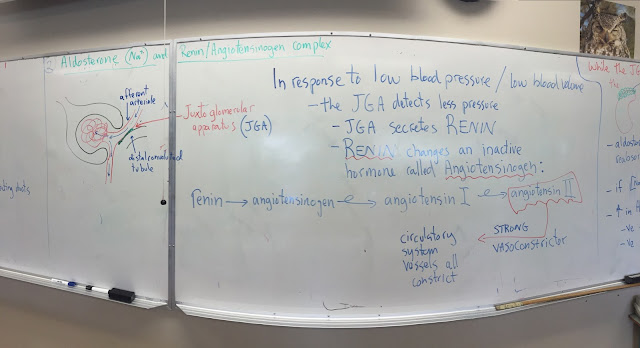 ③ Aldosterone (Na⁺) and Renin/Angiotensinogen complex
afferent
arteriole
Juxtaglomerular
apparatus (JGA)
distal convoluted
tubule
ting ducts
In response to low blood pressure / low blood volume
- the JGA detects less pressure
- JGA secretes RENIN
- RENIN changes an inactive
hormone called Angiotensinogen:
renin → angiotensinogen → angiotensin I → angiotensin II
STRONG
vasoconstrictor
circulatory
system
vessels all
constrict
while the JG
the
- aldoste
reabsor
- if
- ↑ in
- ve
- ve